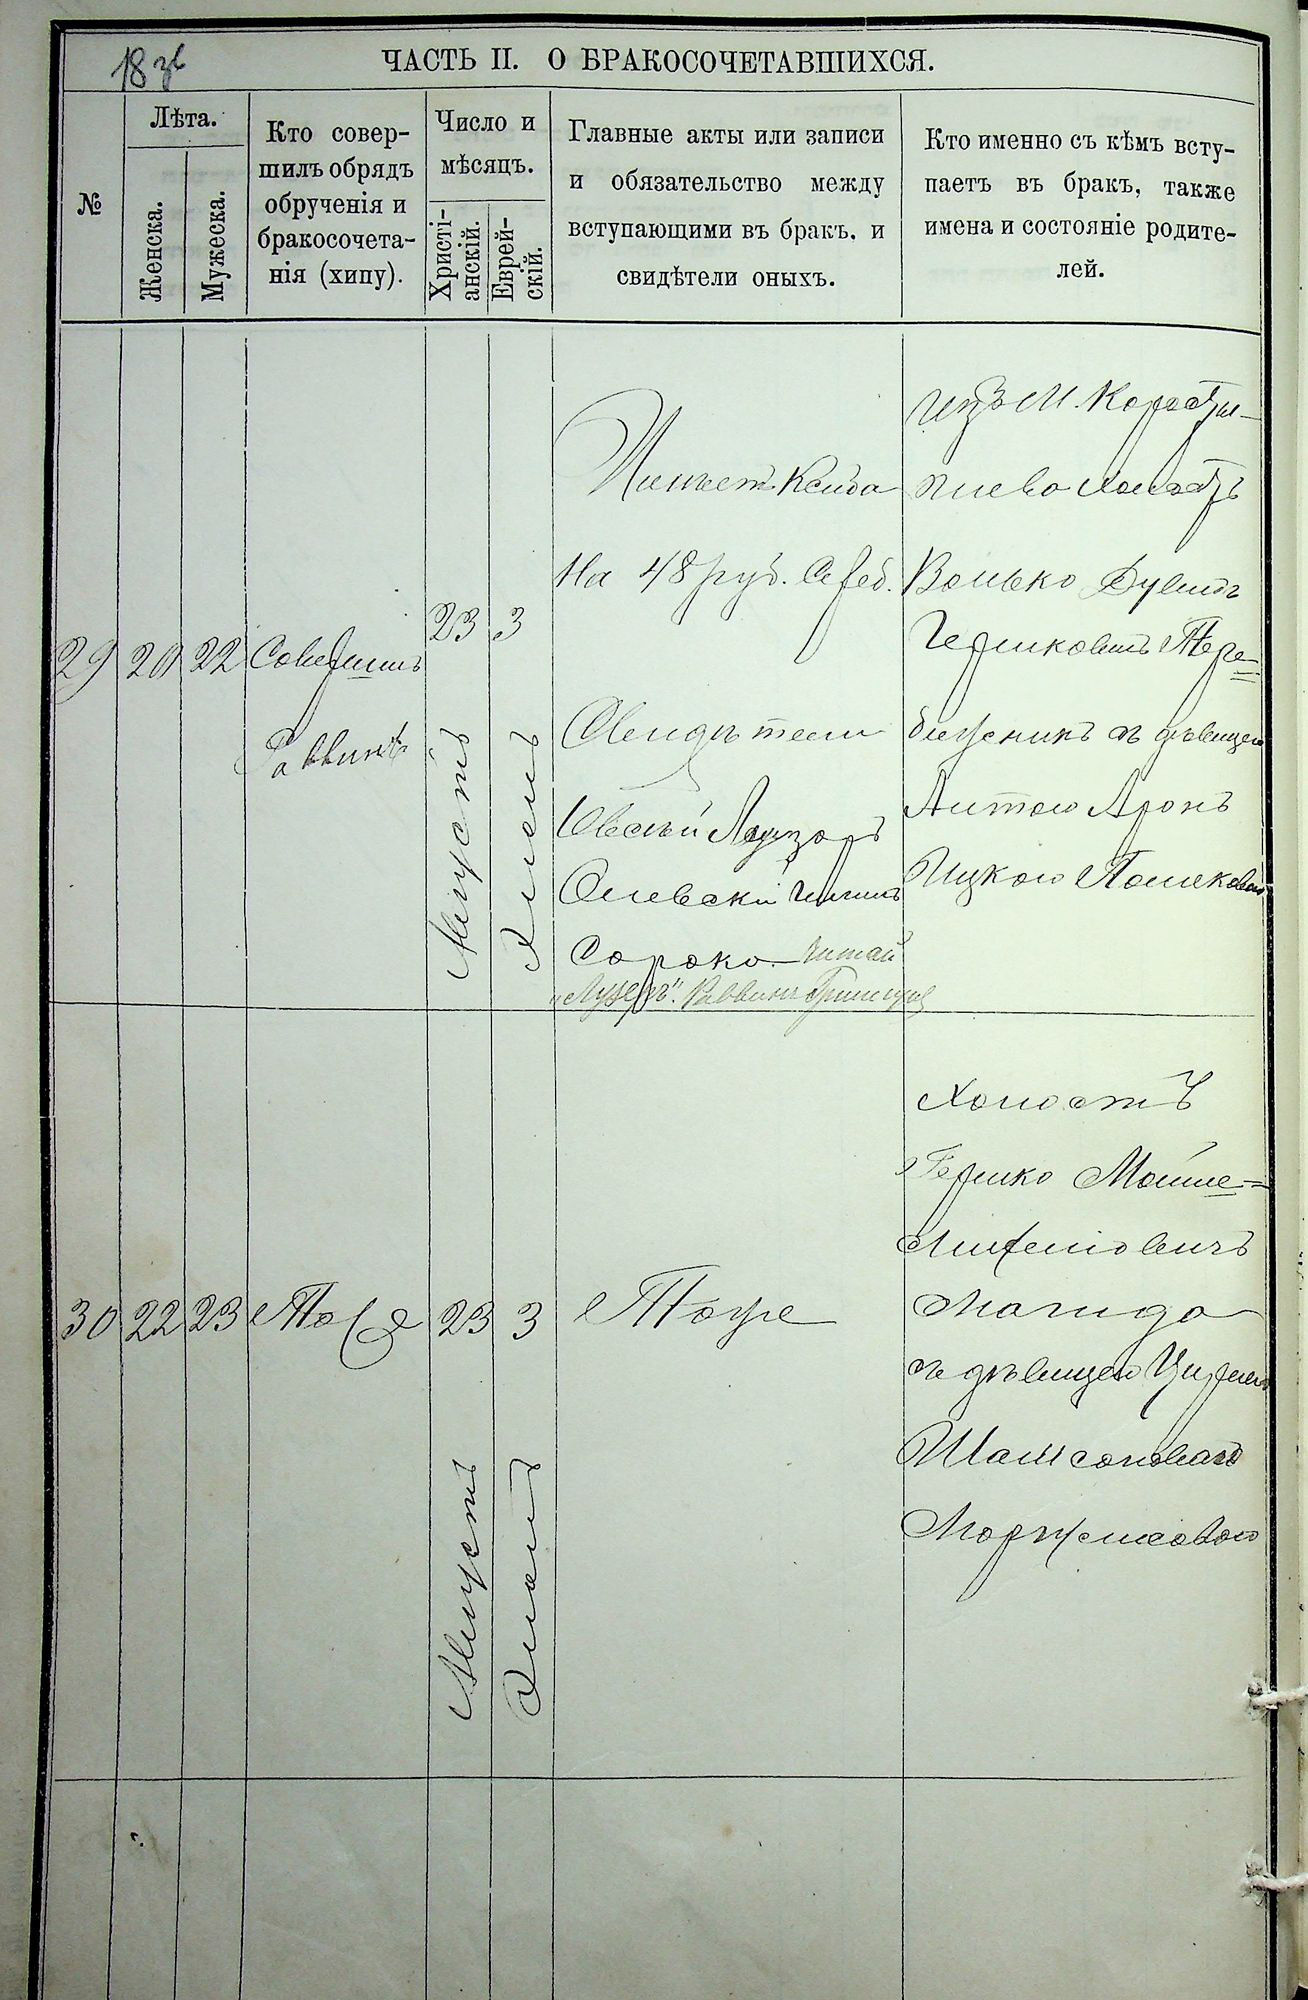 18 зв
ЧАСТЬ II. О БРАКОСОЧЕТАВШИХСЯ.
№
Лѣта.
Женска.
Мужеска.
Кто совер-
шилъ обрядъ
обрученія и
бракосочета-
нія (хипу).
Число и
мѣсяцъ.
Христі-
анскій.
Еврей-
скій.
Главные акты или записи
и обязательство между
вступающими въ бракъ, и
свидѣтели оныхъ.
Кто именно съ кѣмъ всту-
паетъ въ бракъ, также
имена и состояніе родите-
лей.
29
20
22
Совершилъ
Раввинъ
23
Августъ
3
На 48 руб. Сереб.
Свидѣтели
Овсѣй Лейзоръ
Олевскій
Сороко. Читай
"Лузеръ". Раввинъ
изъ М. Коросты-
шево холостъ
Волько Дувидъ
Гершковичъ Пере-
съ дѣвицею
Аронъ
Ицково
30
22
23
Тоже
23
Августъ
3
Тоже
Холостъ
Гершко Мойше-
Магида
съ дѣвицею
Шамсоновою